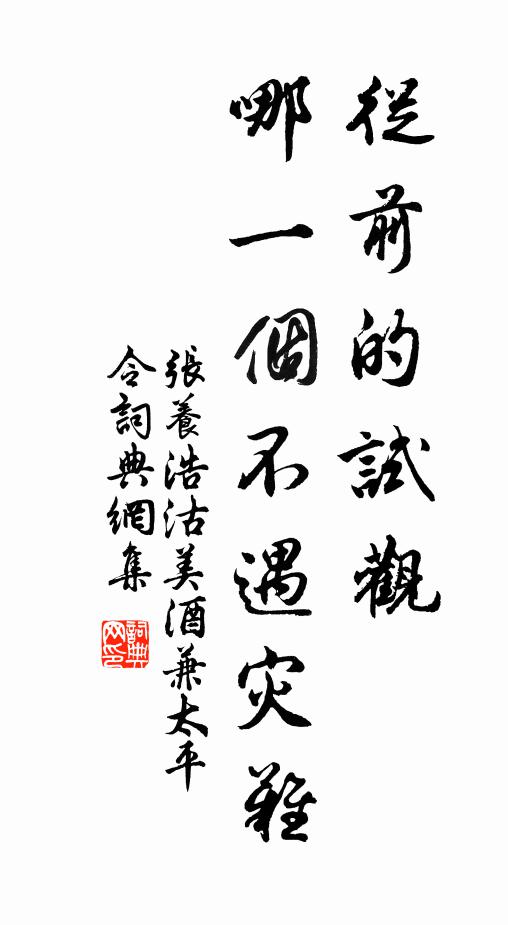 從前的試觀
哪一個不遇灾難
張養浩沽美酒兼太平
令詞典網集
詞典网印